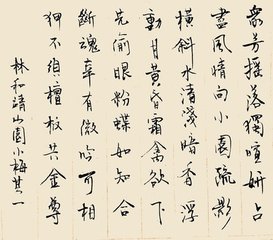 衆芳摇落獨喧妍占
盡風情向小園疏影
橫斜水清淺暗香浮
動月黃昏霜禽欲下
先偷眼粉蝶如知合
斷魂幸有微吟可相
狎不須檀板共金尊
林和靖山園小梅其一